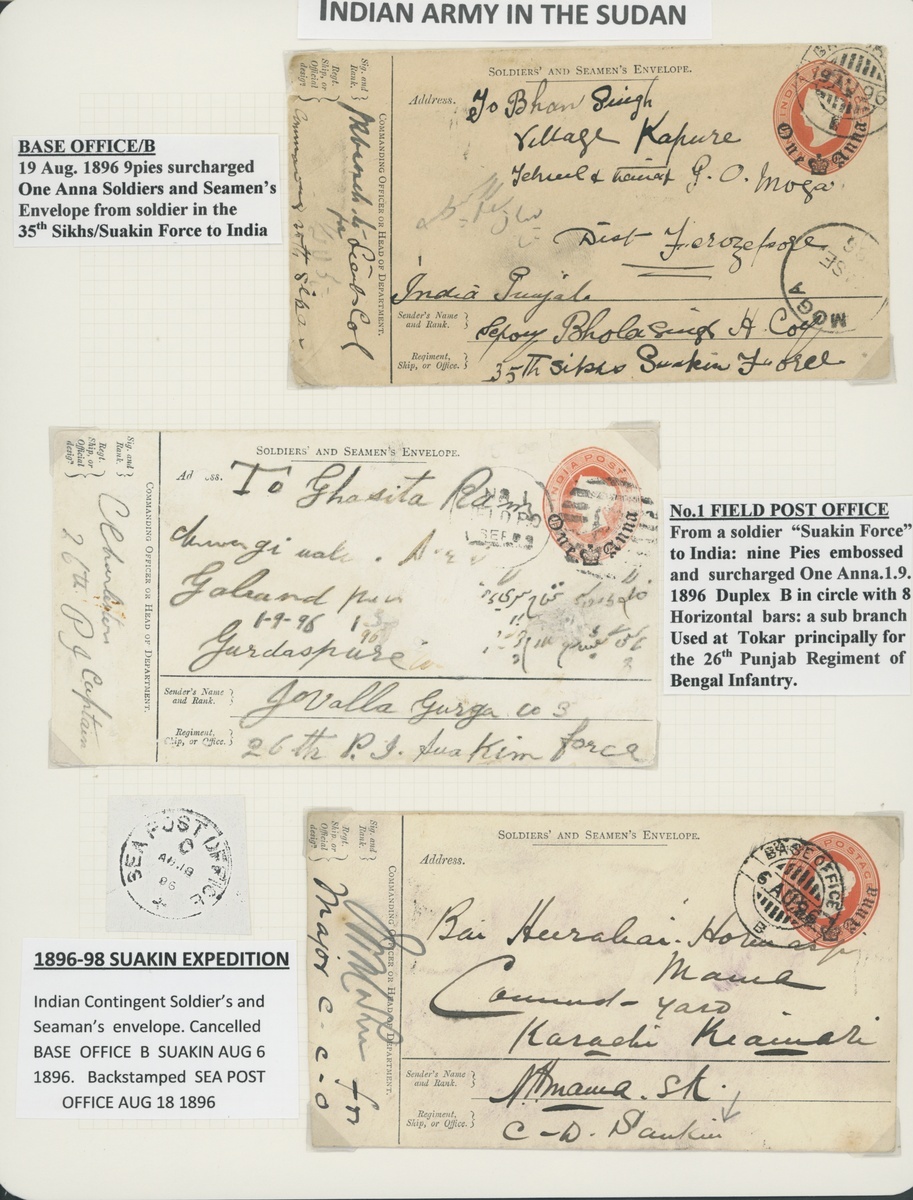 INDIAN ARMY IN THE SUDAN
BASE OFFICE/B
19 Aug. 1896 9pies surcharged
One Anna Soldiers and Seamen's
Envelope from soldier in the
35th Sikhs/Suakin Force to India
SOLDIERS' AND SEAMEN'S ENVELOPE.
Address.
To Bhan Singh
Village Kapure
P. O. Moga
Dist Ferozepore
India Punjab
Sender's Name
and Rank.
Sepoy Bhola Singh H. Coy
Regiment,
Ship, or Office.
35th Sikhs Suakin Force
COMMANDING OFFICER OR HEAD OF DEPARTMENT.
Sig. and
Rank.
Regt.
Ship, or
Official
desigr
Lieut Col
Commanding 35th Sikhs
INDIA
One Anna
MOGA
SOLDIERS' AND SEAMEN'S ENVELOPE.
Ad ess.
To Ghasita Ram
1-9-96
Gurdaspure
Sender's Name
and Rank.
Jovalla Gurga co 3
Regiment,
Ship, or Office.
26th P. I. Suakim force
COMMANDING OFFICER OR HEAD OF DEPARTMENT.
Sig. and
Rank.
Regt.
Ship, or
Official
desigr
Captain
26th P I
INDIA POST
One Anna
No. 1
SE
No.1 FIELD POST OFFICE
From a soldier “Suakin Force”
to India: nine Pies embossed
and surcharged One Anna.1.9.
1896 Duplex B in circle with 8
Horizontal bars: a sub branch
Used at Tokar principally for
the 26th Punjab Regiment of
Bengal Infantry.
SEA POST OFFICE
C
AU 18
96
1896-98 SUAKIN EXPEDITION
Indian Contingent Soldier's and
Seaman's envelope. Cancelled
BASE OFFICE B SUAKIN AUG 6
1896. Backstamped SEA POST
OFFICE AUG 18 1896
SOLDIERS' AND SEAMEN'S ENVELOPE.
Address.
Bai Heerabai
Mama
Karachi Kiamari
Sender's Name
and Rank.
Mama. Sk.
Regiment,
Ship, or Office.
C-D. Suakin
COMMANDING OFFICER OR HEAD OF DEPARTMENT.
Sig. and
Rank.
Regt.
Ship, or
Official
desigr
Major C-C-O
for
BASE OFFICE
6 AU 96
B
POSTAGE
One Anna